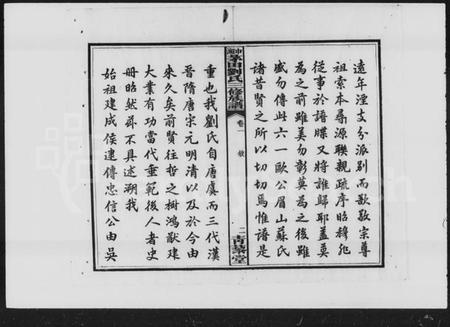 遠年湮支分派別而欲敬宗尊
祖索本尋源聯親疏序昭穆凡
從事於譜牒又將誰歸耶蓋莫
為之前雖美勿彰莫為之後雖
盛勿傳此六一歐公眉山蘇氏
諸昔賢之所以切切焉惟譜是
茅田劉氏二修族譜
卷一 敘
二 青藜堂
重也我劉氏自唐虞而三代漢
晉隋唐宋元明清以及於今由
來久矣前賢往哲之樹鴻猷建
大業有功當代垂範後人者史
冊昭然茲不具述溯我
始祖建成侯逮傳忠信公由吳